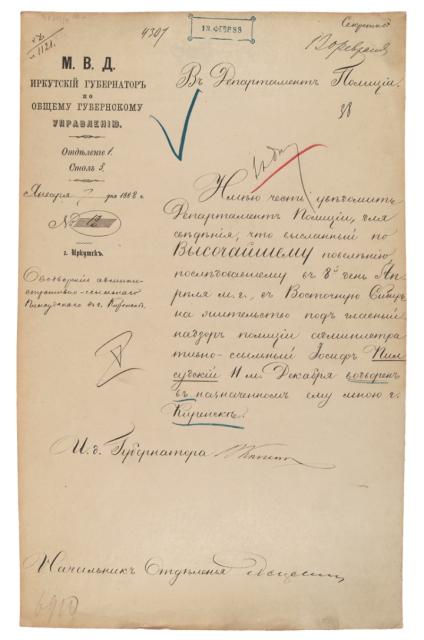 Секретно
4307
13 ФЕВР 88
М. В. Д.
ИРКУТСКІЙ ГУБЕРНАТОРЪ
по
ОБЩЕМУ ГУБЕРНСКОМУ
УПРАВЛЕНІЮ.
Отдѣленіе 1.
Столъ 3.
Января 7 дня 1888 г.
№ 12
г. Иркутскъ.
О водвореніи
ссыльнаго
Пилсудскаго въ г. Киренскѣ.
Въ Департаментъ Полиціи.
38
Имѣю честь увѣдомить
Департаментъ Полиціи, для
свѣдѣнія, что высланный по
ВЫСОЧАЙШЕМУ повелѣнію,
послѣдовавшему въ 8 день Ап-
рѣля м. г., въ Восточную Сибирь
на жительство подъ гласный
надзоръ полиціи администра
тивно-ссыльный Іосифъ Пил
судскій 11 м. Декабря водворенъ
въ назначенномъ ему мною г.
Киренскѣ.
И. д. Губернатора
Начальникъ Отдѣленія
6910